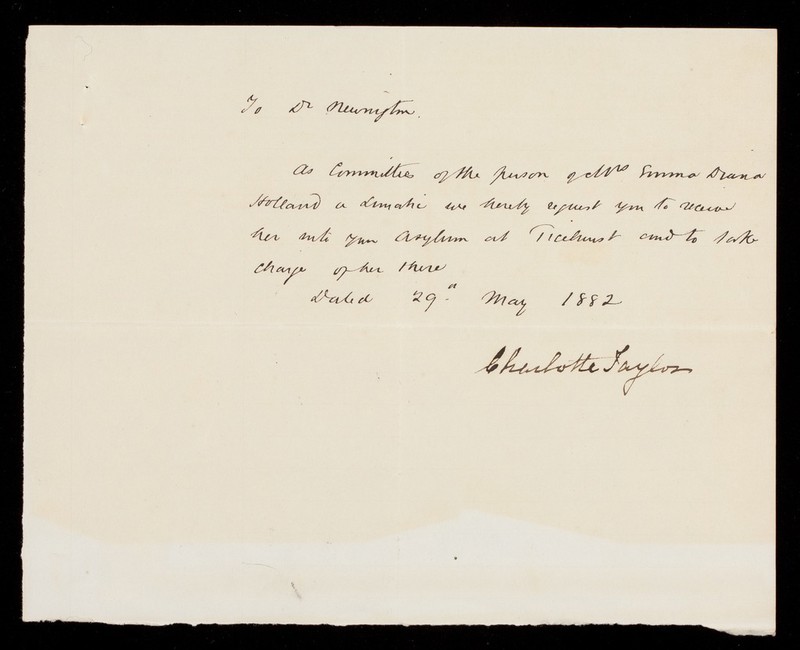 To Dr Newington.
As Committees of the person of Mrs Emma Diana
Holland a Lunatic we hereby request you to receive
her into your Asylum at Ticehurst and to take
charge of her there
Dated 29th May 1882
Charlotte Taylor